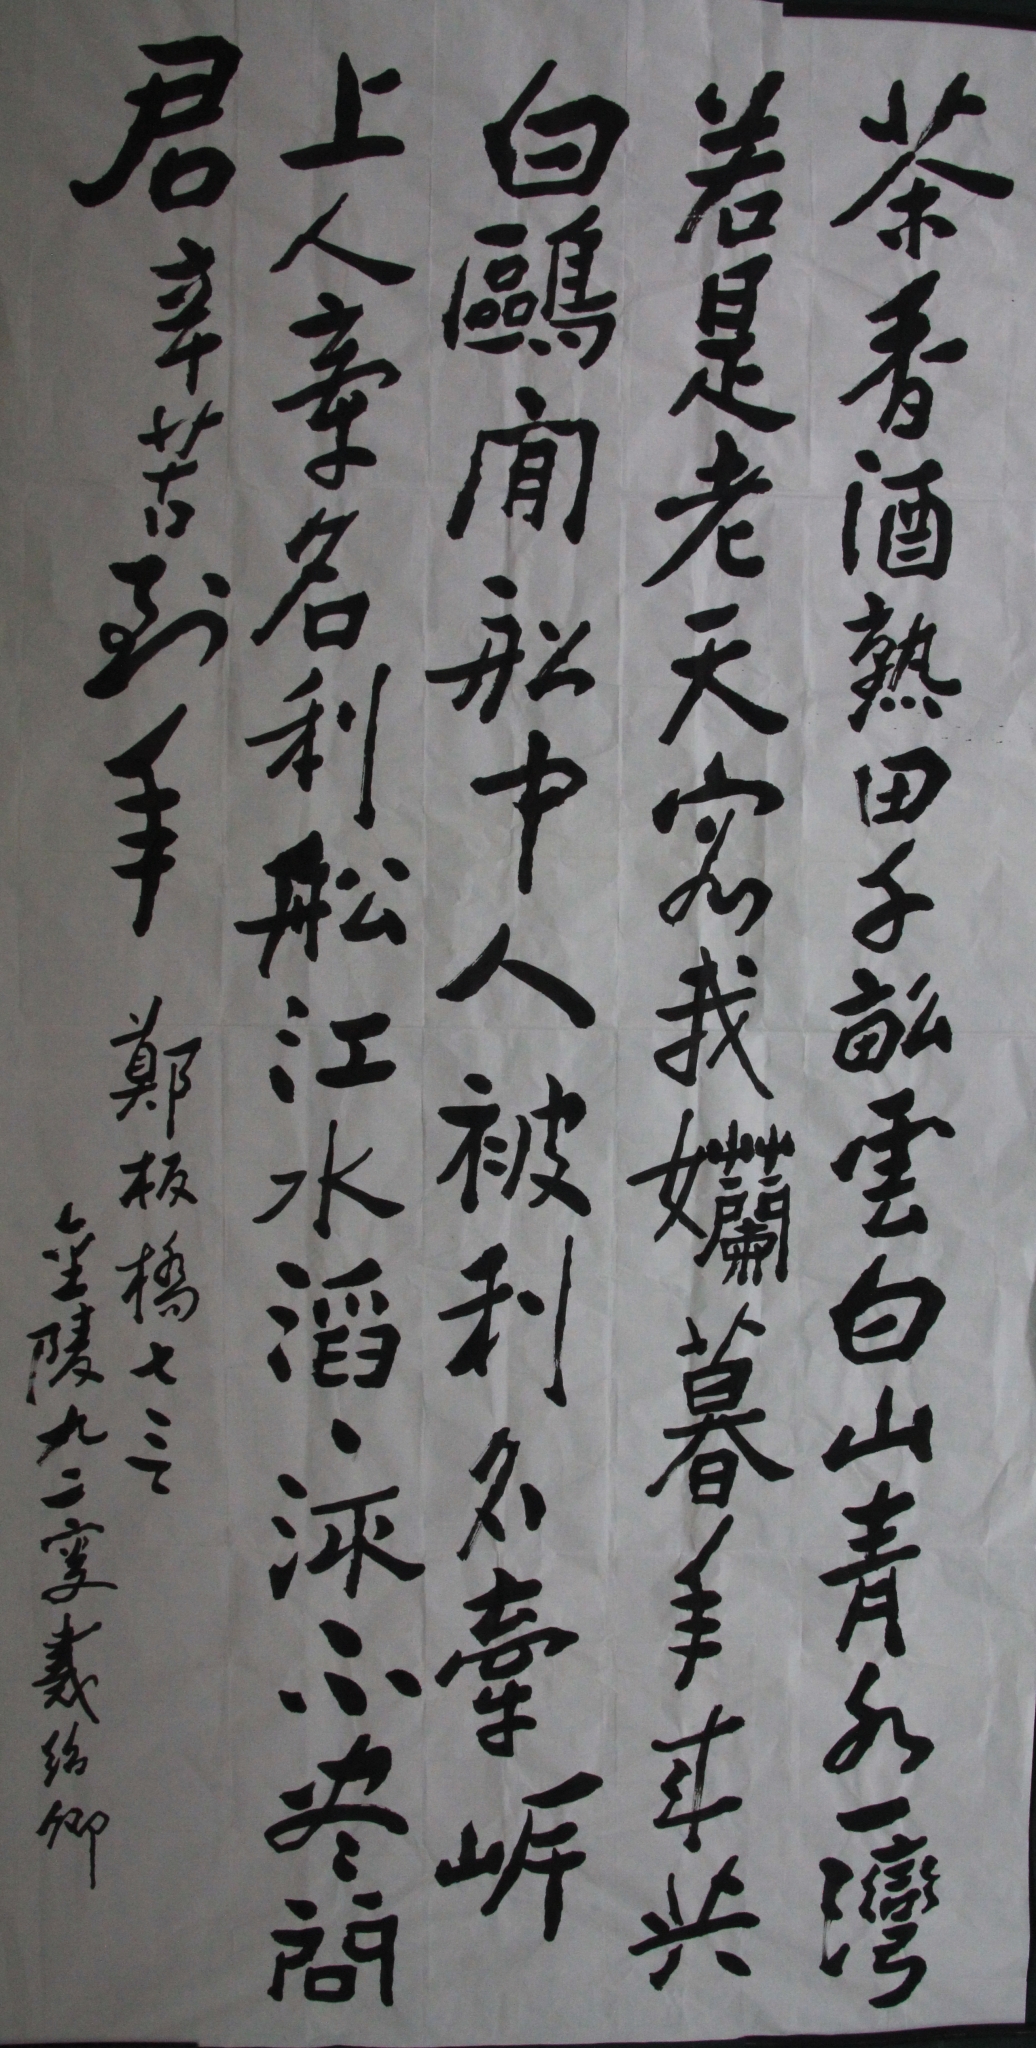 茶香酒熟田千畝雲白山青水一灣
若是老天容我嬾暮年來共
白鷗閒船中人被利名牽岸
上人牽名利船江水滔、流不尽問
君辛苦到年
鄭板橋七言
金陵九二叟戴紹卿